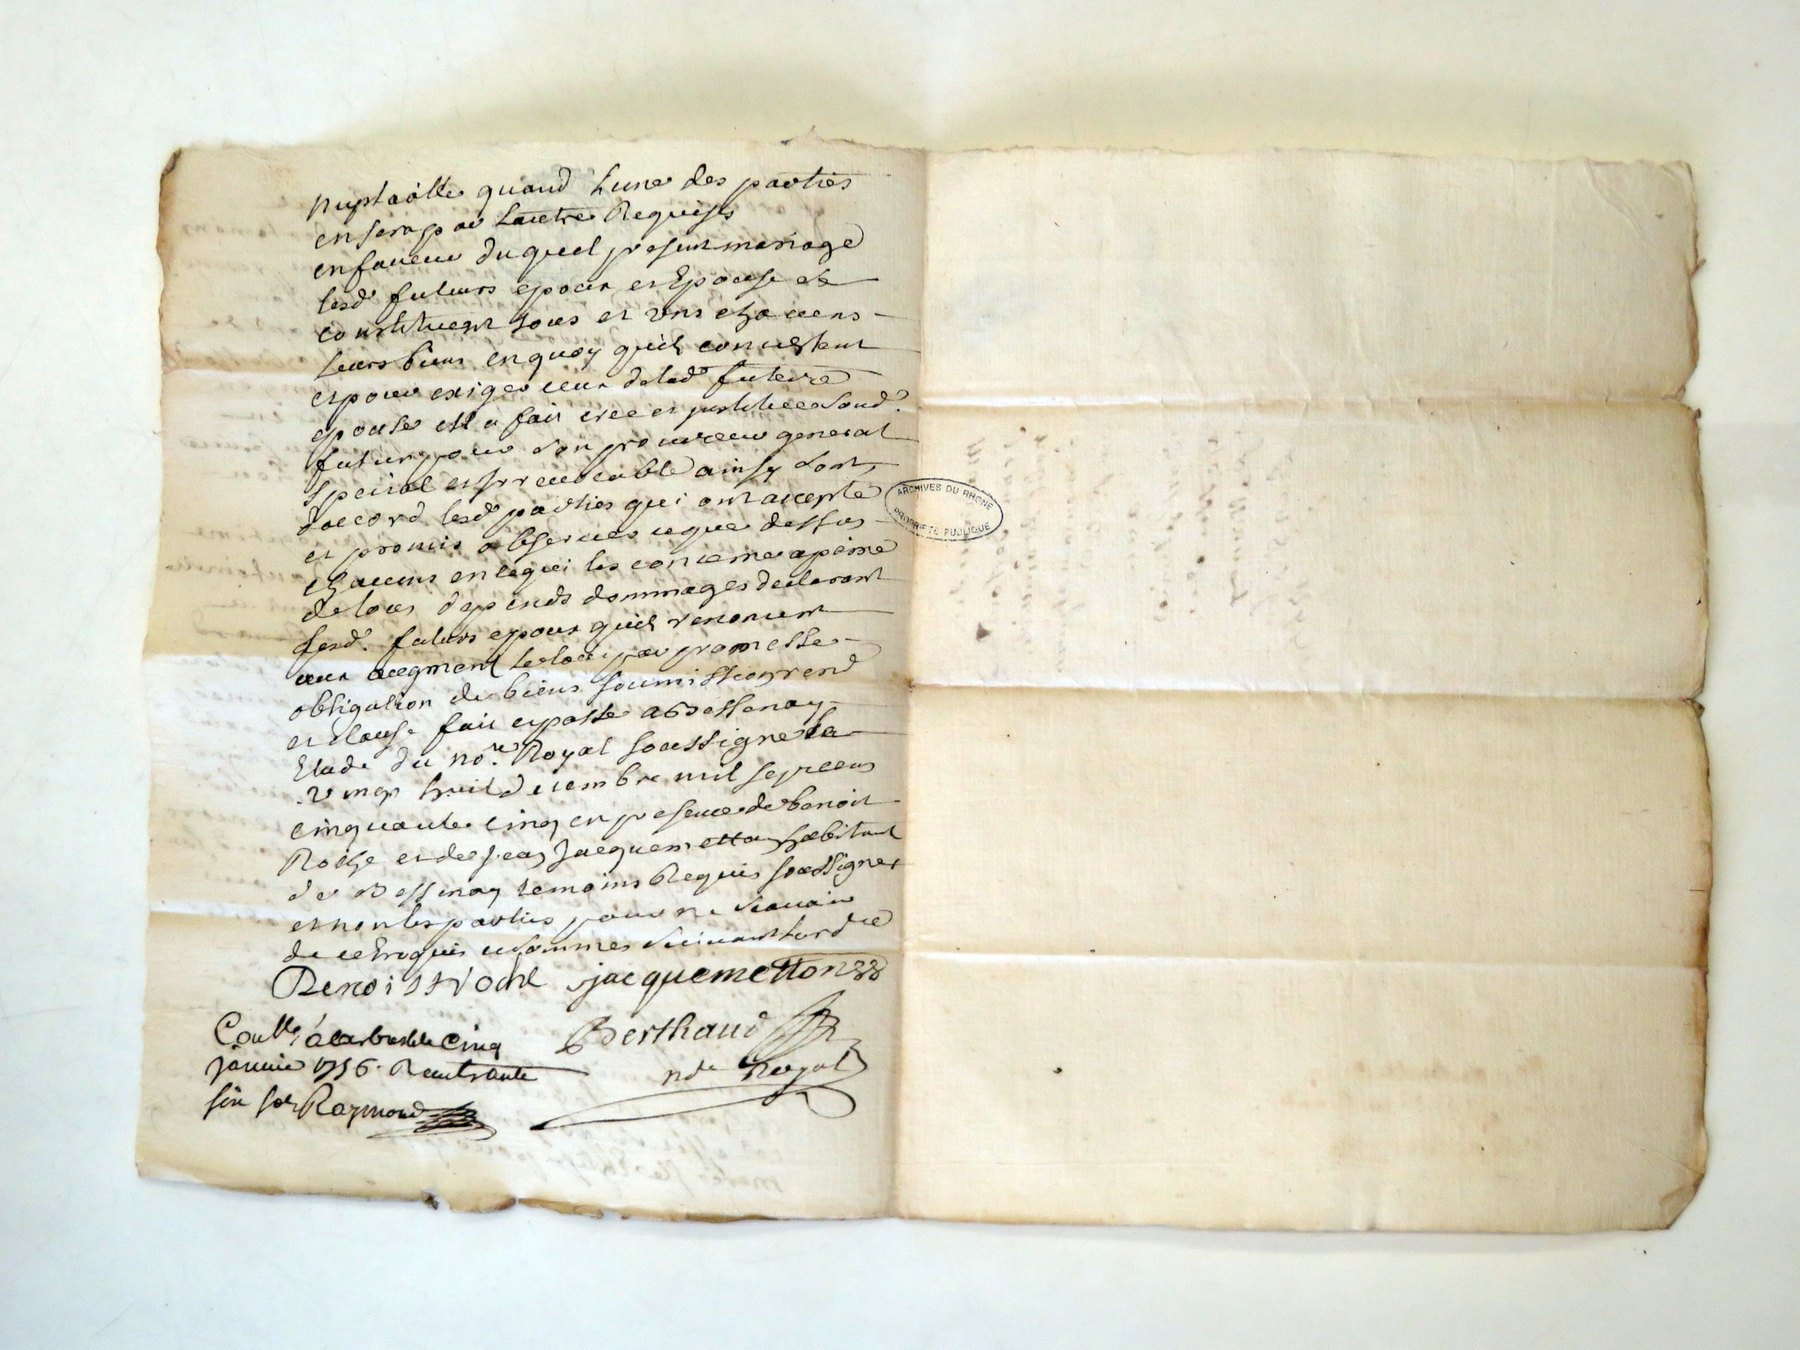 nuptialle quand Lune des parties
en sera par Lautre Requise
en faveur duquel present mariage
lesd. futurs epoux et Epouse se
constituent tous et uns chacuns
leurs biens en quoy quils consistent
et pour exiger ceux de lad. future
epouse elle a fait cree et justituee sond.
futur pour son procureur general
special et Irrevocable ainsy sont
daccord lesd. parties qui ont accepte
et promis observer ce que dessus
chacuns en ce qui les concerne a peine
de tous depends dommages declarant
lesd. futurs epoux quils renoncent
aux augment le tout par promesse
obligation de biens soumission rend
et clause fait et passe a Bessenay
Etude du nore. Royal soussigne le
vingt huit decembre mil sept cent
cinquante cinq en presence de benoit
Roche et de Jean Jacquemetton habitant
de Bessenay temoins Requis soussignes
et non les parties pour ne scavoir
de ce Enquis et sommes suivant lordre
Benoist jacquemetton
Coullé a Larbresle le cinq Berthaud
janvier 1756. R nre Royal
six sols Raymond
ARCHIVES DU RHONE
PROPRIETE PUBLIQUE